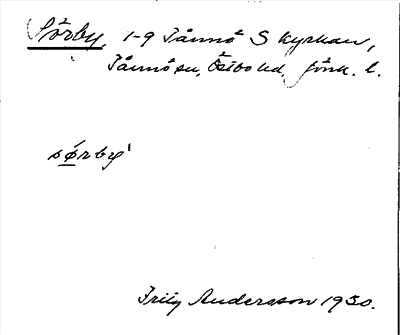 Sörby, 1-9 Tånnö S kyrkan,
Tånnö sn, Östbo hd, Jönk. l.
sørby
Fritz Andersson 1930.